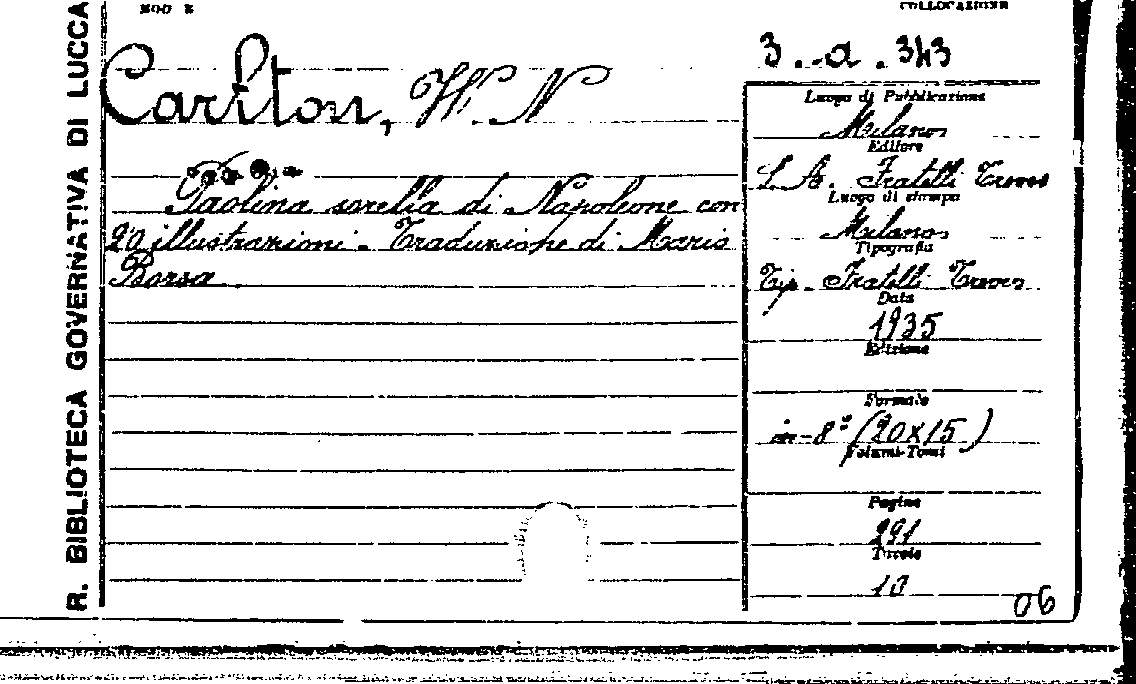 MOD 2
COLLOCAZIONE
R. BIBLIOTECA GOVERNATIVA DI LUCCA
3. a. 343
Carlton, W. N
Paolina sorella di Napoleone con
20 illustrazioni. Traduzione di Mario
Borsa
Luogo di Pubblicazione
Milano
Editore
S. A. Fratelli Treves
Luogo di stampa
Milano
Tipografia
Tip. Fratelli Treves
Data
1935
Edizione
Formato
in-8° (20x15)
Volumi-Tomi
Pagine
291
Tavole
10
06